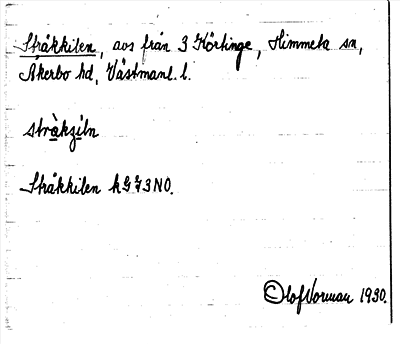 Stråkkilen, avs från 3 Hörtinge, Himmeta sn,
Åkerbo hd, Västmanl. l.
stràkzìln
Stråkkilen hG73NO.
Olof Vorman 1930.